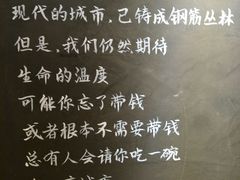 现代的城市，已铸成钢筋丛林
但是，我们仍然期待
生命的温度
可能你忘了带钱
或者根本不需要带钱
总有人会请你吃一碗